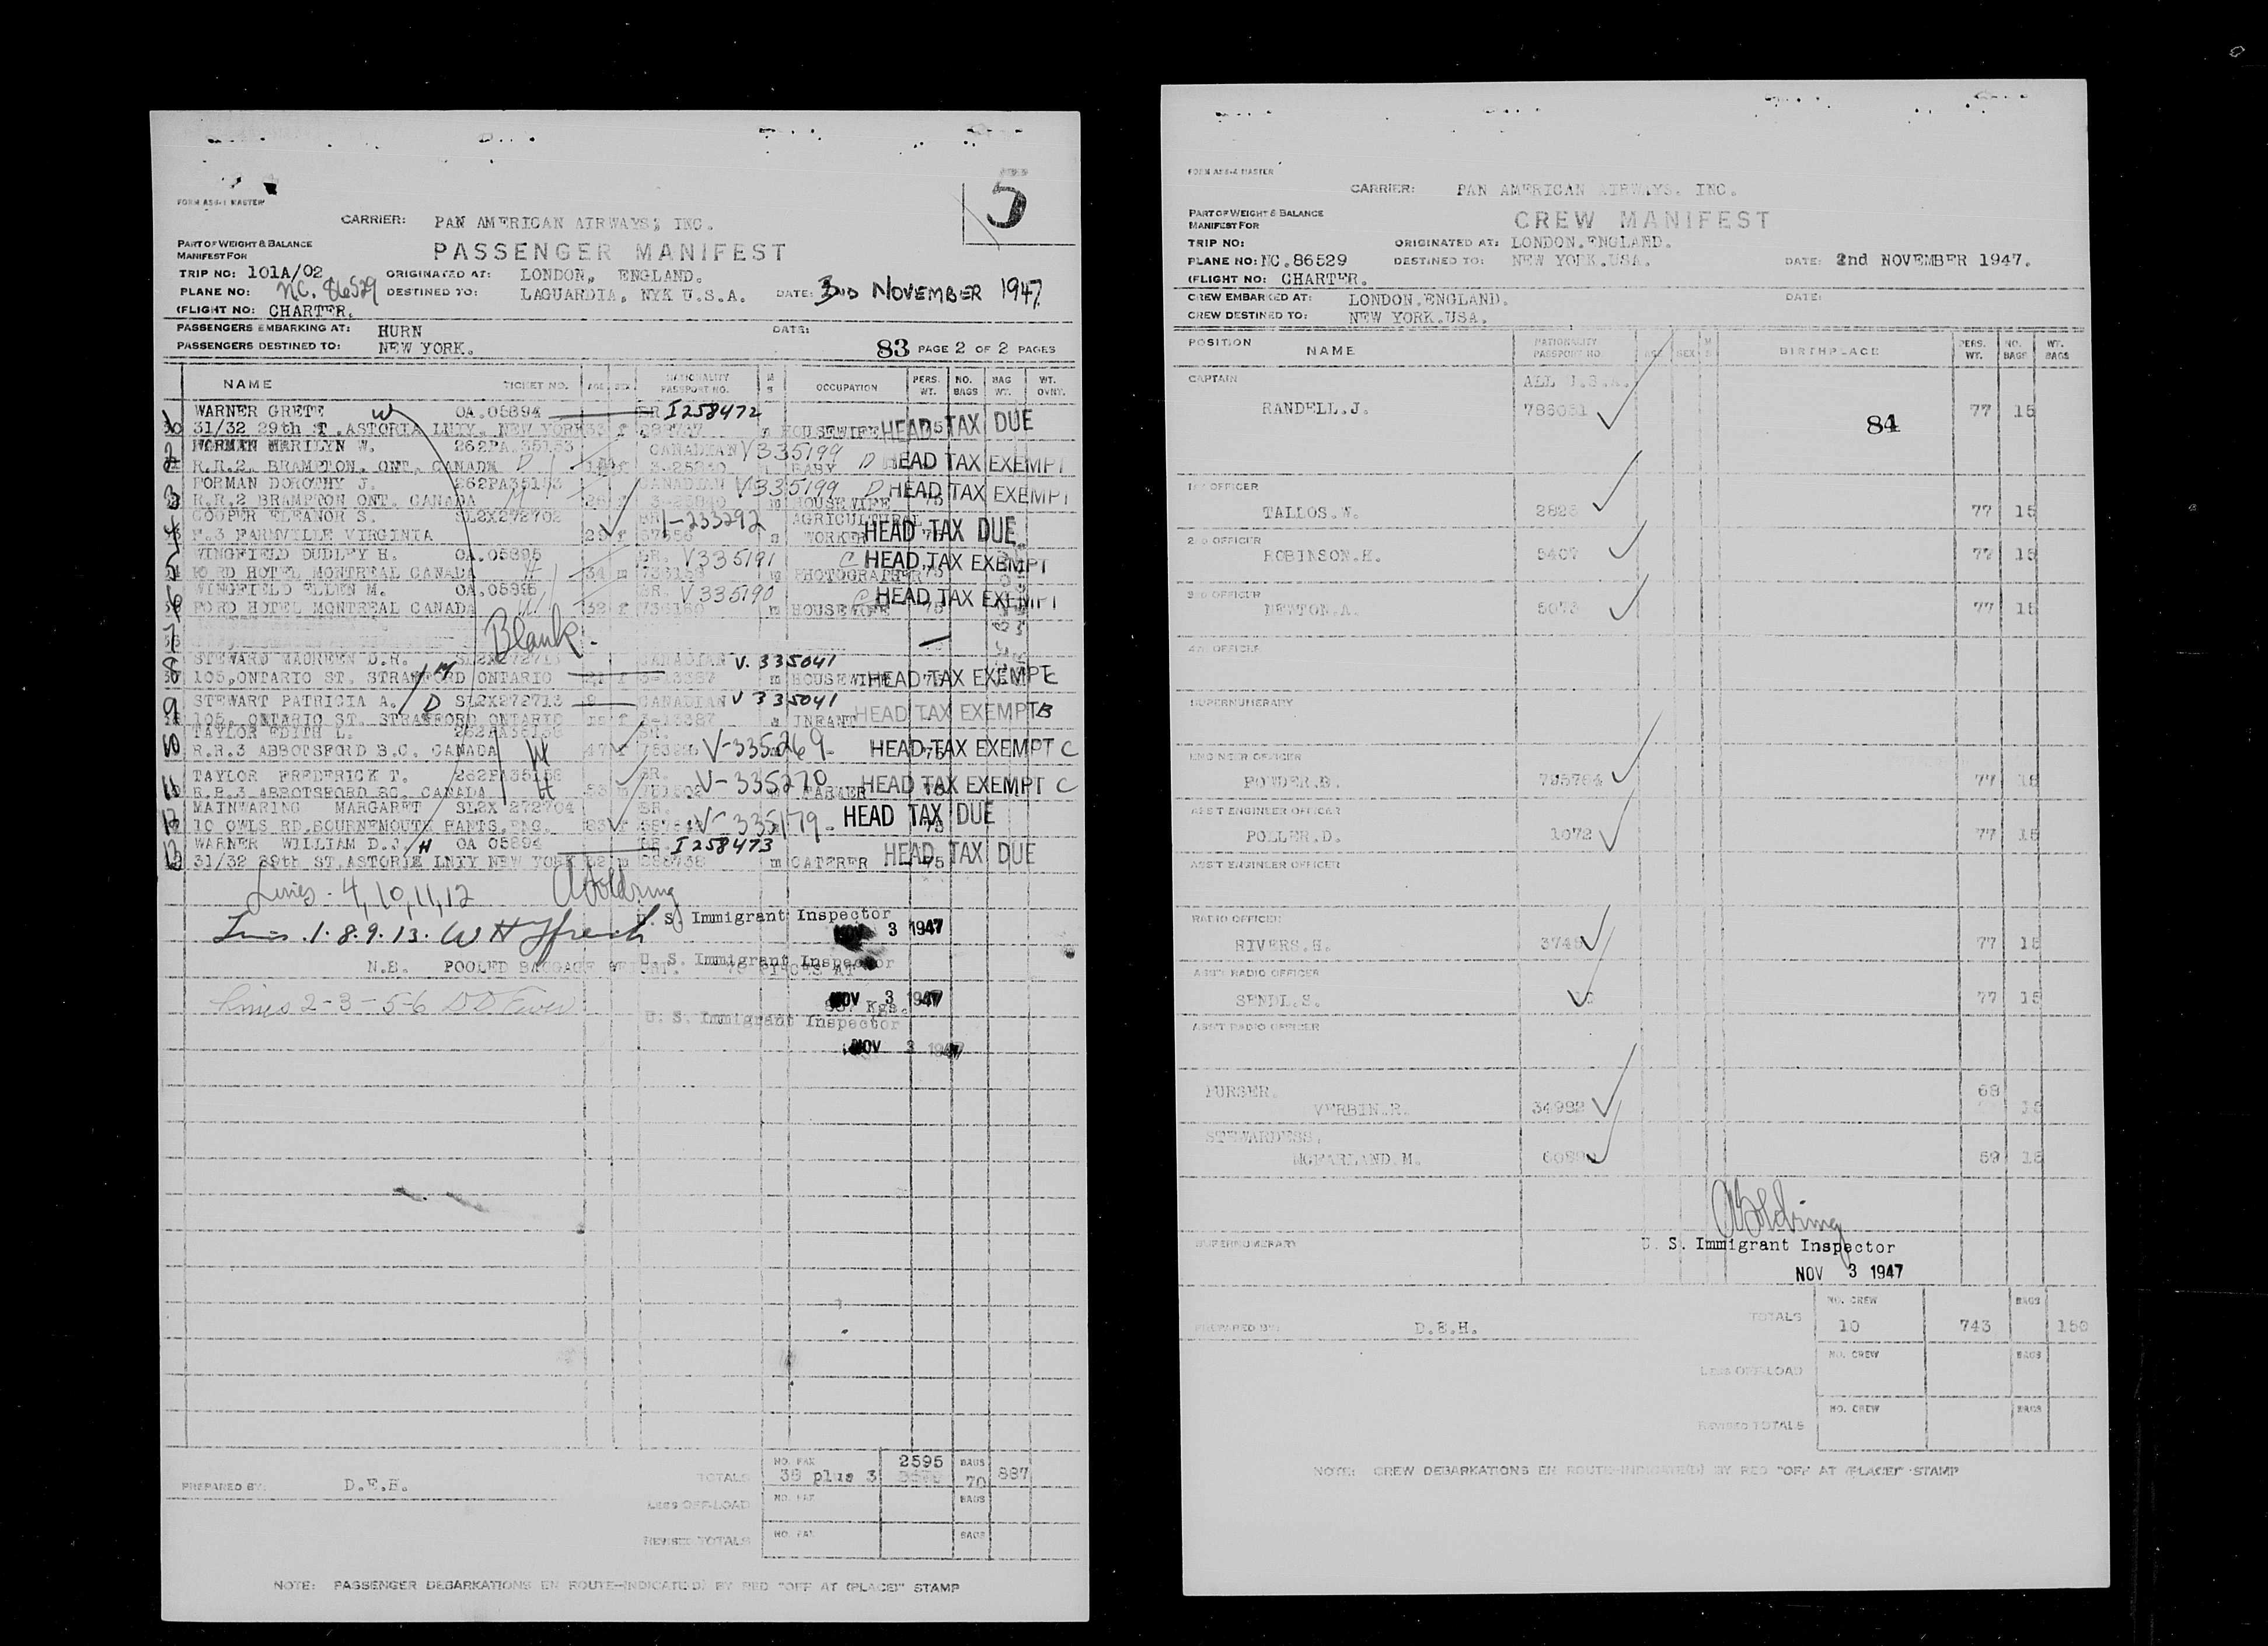 5
FORM AS8-1 MASTER
CARRIER: PAN AMERICAN AIRWAYS, INC.
PART OF WEIGHT & BALANCE
MANIFEST FOR
PASSENGER MANIFEST
TRIP NO: 101A/02 ORIGINATED AT: LONDON, ENGLAND.
PLANE NO: NC. 86529 DESTINED TO: LAGUARDIA, NYK U.S.A. DATE: NOVEMBER 1947
(FLIGHT NO: CHARTER.
PASSENGERS EMBARKING AT: HURN DATE:
PASSENGERS DESTINED TO: NEW YORK. 83 PAGE 2 OF 2 PAGES
NAME TICKET NO. AGE SEX NATIONALITY PASSPORT NO. M S OCCUPATION PERS. WT. NO. BAGS BAG WT. WT. OVNY.
WARNER GRETE W OA.05894 BR I258472
31/32 29th T .ASTORIA LNIY. NEW YORK f HOUSEWIFE HEAD TAX DUE
2 NORMAN MARILYN W. 262PA 35153 CANADIAN V335199
R.R.2. BRAMPTON, ONT, CANADA D f BABY D HEAD TAX EXEMPT
3 FORMAN DOROTHY J. 262PA35153 CANADIAN V335199 D
R.R.2 BRAMPTON ONT. CANADA f HOUSEWIFE HEAD TAX EXEMPT
4 COOPER ELEANOR S. SL2X272702 BR I-233292 AGRICULTURAL
R.3 FARMVILLE VIRGINIA f WORKER HEAD TAX DUE
5 WINGFIELD DUDLEY H. OA.05895 BR. V335191 C
FORD HOTEL MONTREAL CANADA H 34 m PHOTOGRAPHER HEAD TAX EXEMPT
6 WINGFIELD ELLEN M. OA.05895 BR. V335190 C
FORD HOTEL MONTREAL CANADA W f 736150 m HOUSEWIFE HEAD TAX EXEMPT
7 Blank.
8 STEWARD MAUREEN D.R. SL2X272713 CANADIAN V. 335041
105,ONTARIO ST. STRATFORD ONTARIO M f m HOUSEWIFE HEAD TAX EXEMPT C
9 STEWART PATRICIA A. D SL2X272713 9 CANADIAN V 335041
105, ONTARIO ST. STRATFORD ONTARIO ms f INFANT HEAD TAX EXEMPT B
10 TAYLOR EDITH L. BR.
R.R.3 ABBOTSFORD B.C. CANADA W f V-335269- HEAD TAX EXEMPT C
11 TAYLOR FREDERICK T. BR. V-335270
R.R.3 ABBOTSFORD BC. CANADA H m FARMER HEAD TAX EXEMPT C
12 MAINWARING MARGARET SL2X 272704 BR.
10 OWLS RD.BOURNEMOUTH HANTS.ENG. f V-335179- HEAD TAX DUE
13 WARNER WILLIAM D.J. H OA 05894 BR. I258473
31/32 29th ST.ASTORIA LNIY NEW YORK m m CATERER 75 HEAD TAX DUE
Lines - 4, 10, 11, 12 A Goldring
U. S. Immigrant Inspector
Lines .1.8.9.13. W H Ffrench NOV 3 1947
U. S. Immigrant Inspector
N.B. POOLED BAGGAGE WEIGHT. PIECES AT
Lines 2-3-5-6 NOV 3 1947
Kgs.
U. S. Immigrant Inspector
NOV 3 1947
TOTALS NO. PAX 38 plus 3 2595 BAGS 70 887
PREPARED BY: D.E.H.
LESS OFF-LOAD NO. PAX BAGS
REVISED TOTALS NO. PAX BAGS
NOTE: PASSENGER DEBARKATIONS EN ROUTE-INDICATE(D) BY RED "OFF AT (PLACE)" STAMP
FORM AS8-4 MASTER
CARRIER: PAN AMERICAN AIRWAYS. INC.
PART OF WEIGHT & BALANCE
MANIFEST FOR
CREW MANIFEST
TRIP NO: ORIGINATED AT: LONDON.ENGLAND.
PLANE NO: NC.86529 DESTINED TO: NEW YORK.USA. DATE: 2nd NOVEMBER 1947.
(FLIGHT NO: CHARTER.
CREW EMBARKED AT: LONDON.ENGLAND. DATE:
CREW DESTINED TO: NEW YORK.USA.
POSITION NAME NATIONALITY PASSPORT NO. AGE SEX M S BIRTHPLACE PERS. WT. NO. BAGS WT. BAGS
CAPTAIN ALL U.S.A.
RANDELL.J. 786051 77 15
84
1ST OFFICER
TALLOS.W. 2825 77 15
2ND OFFICER
ROBINSON.H. 5407 77 15
3RD OFFICER
NEWTON.A. 5073 77 15
4TH OFFICER
SUPERNUMERARY
ENGINEER OFFICER
FOWDER.B. 795764 77 15
ASST ENGINEER OFFICER
POLLER.D. 1072 77 15
ASST ENGINEER OFFICER
RADIO OFFICER
RIVERS.H. 77 15
ASST RADIO OFFICER
SENDL.S. 77 15
ASST RADIO OFFICER
PURSER. 68
VERBIN.R. 34992 15
STEWARDESS.
MCFARLAND.M. 59 15
A Goldring
SUPERNUMERARY U. S. Immigrant Inspector
NOV 3 1947
TOTALS NO. CREW 10 743 BAGS 150
PREPARED BY: D.E.H.
LESS OFF-LOAD NO. CREW BAGS
REVISED TOTALS NO. CREW BAGS
NOTE: CREW DEBARKATIONS EN ROUTE-INDICATE(D) BY RED "OFF AT (PLACE)" STAMP